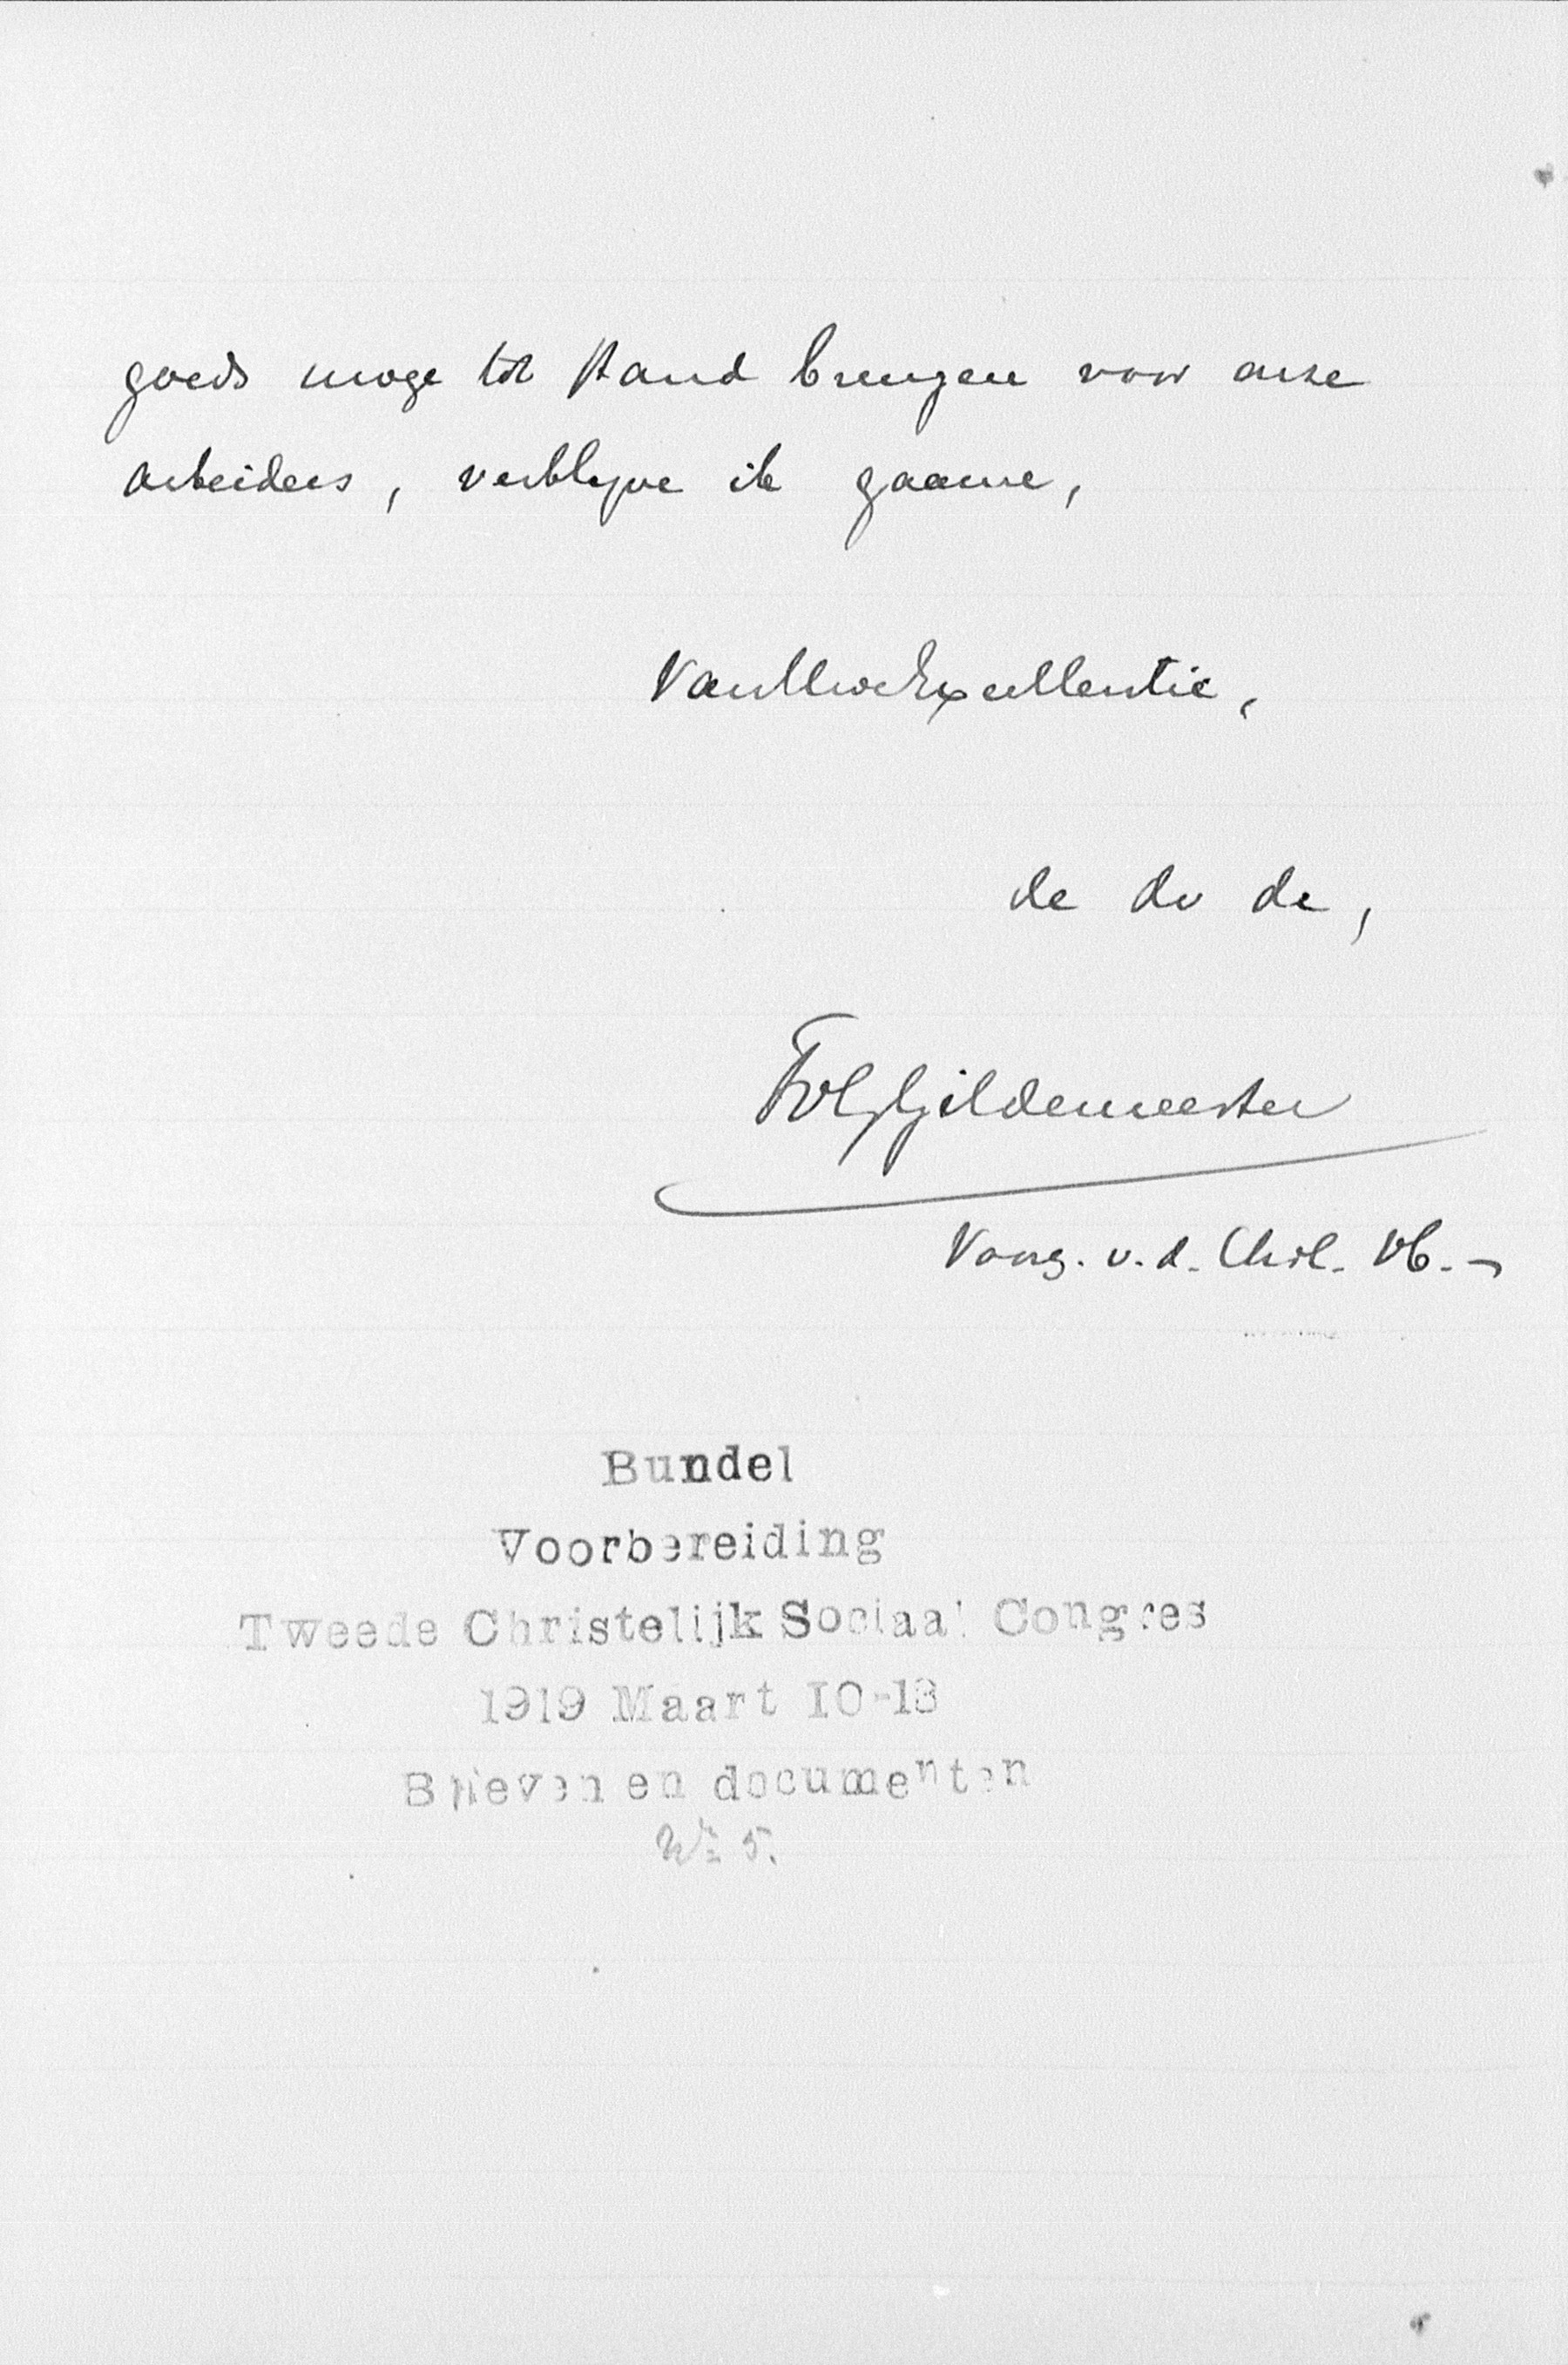 goeds moge tot stand brengen voor onze
arbeiders, verblijve ik gaarne,
Van Uwe Excellentie,
de dv de,
FvGh Gildemeester
Voorz. v.d. Chr.
Bundel
Voorbereiding
Tweede Christelijk Sociaal Congres
1919 Maart 10-13
Brieven en documenten
No 5.